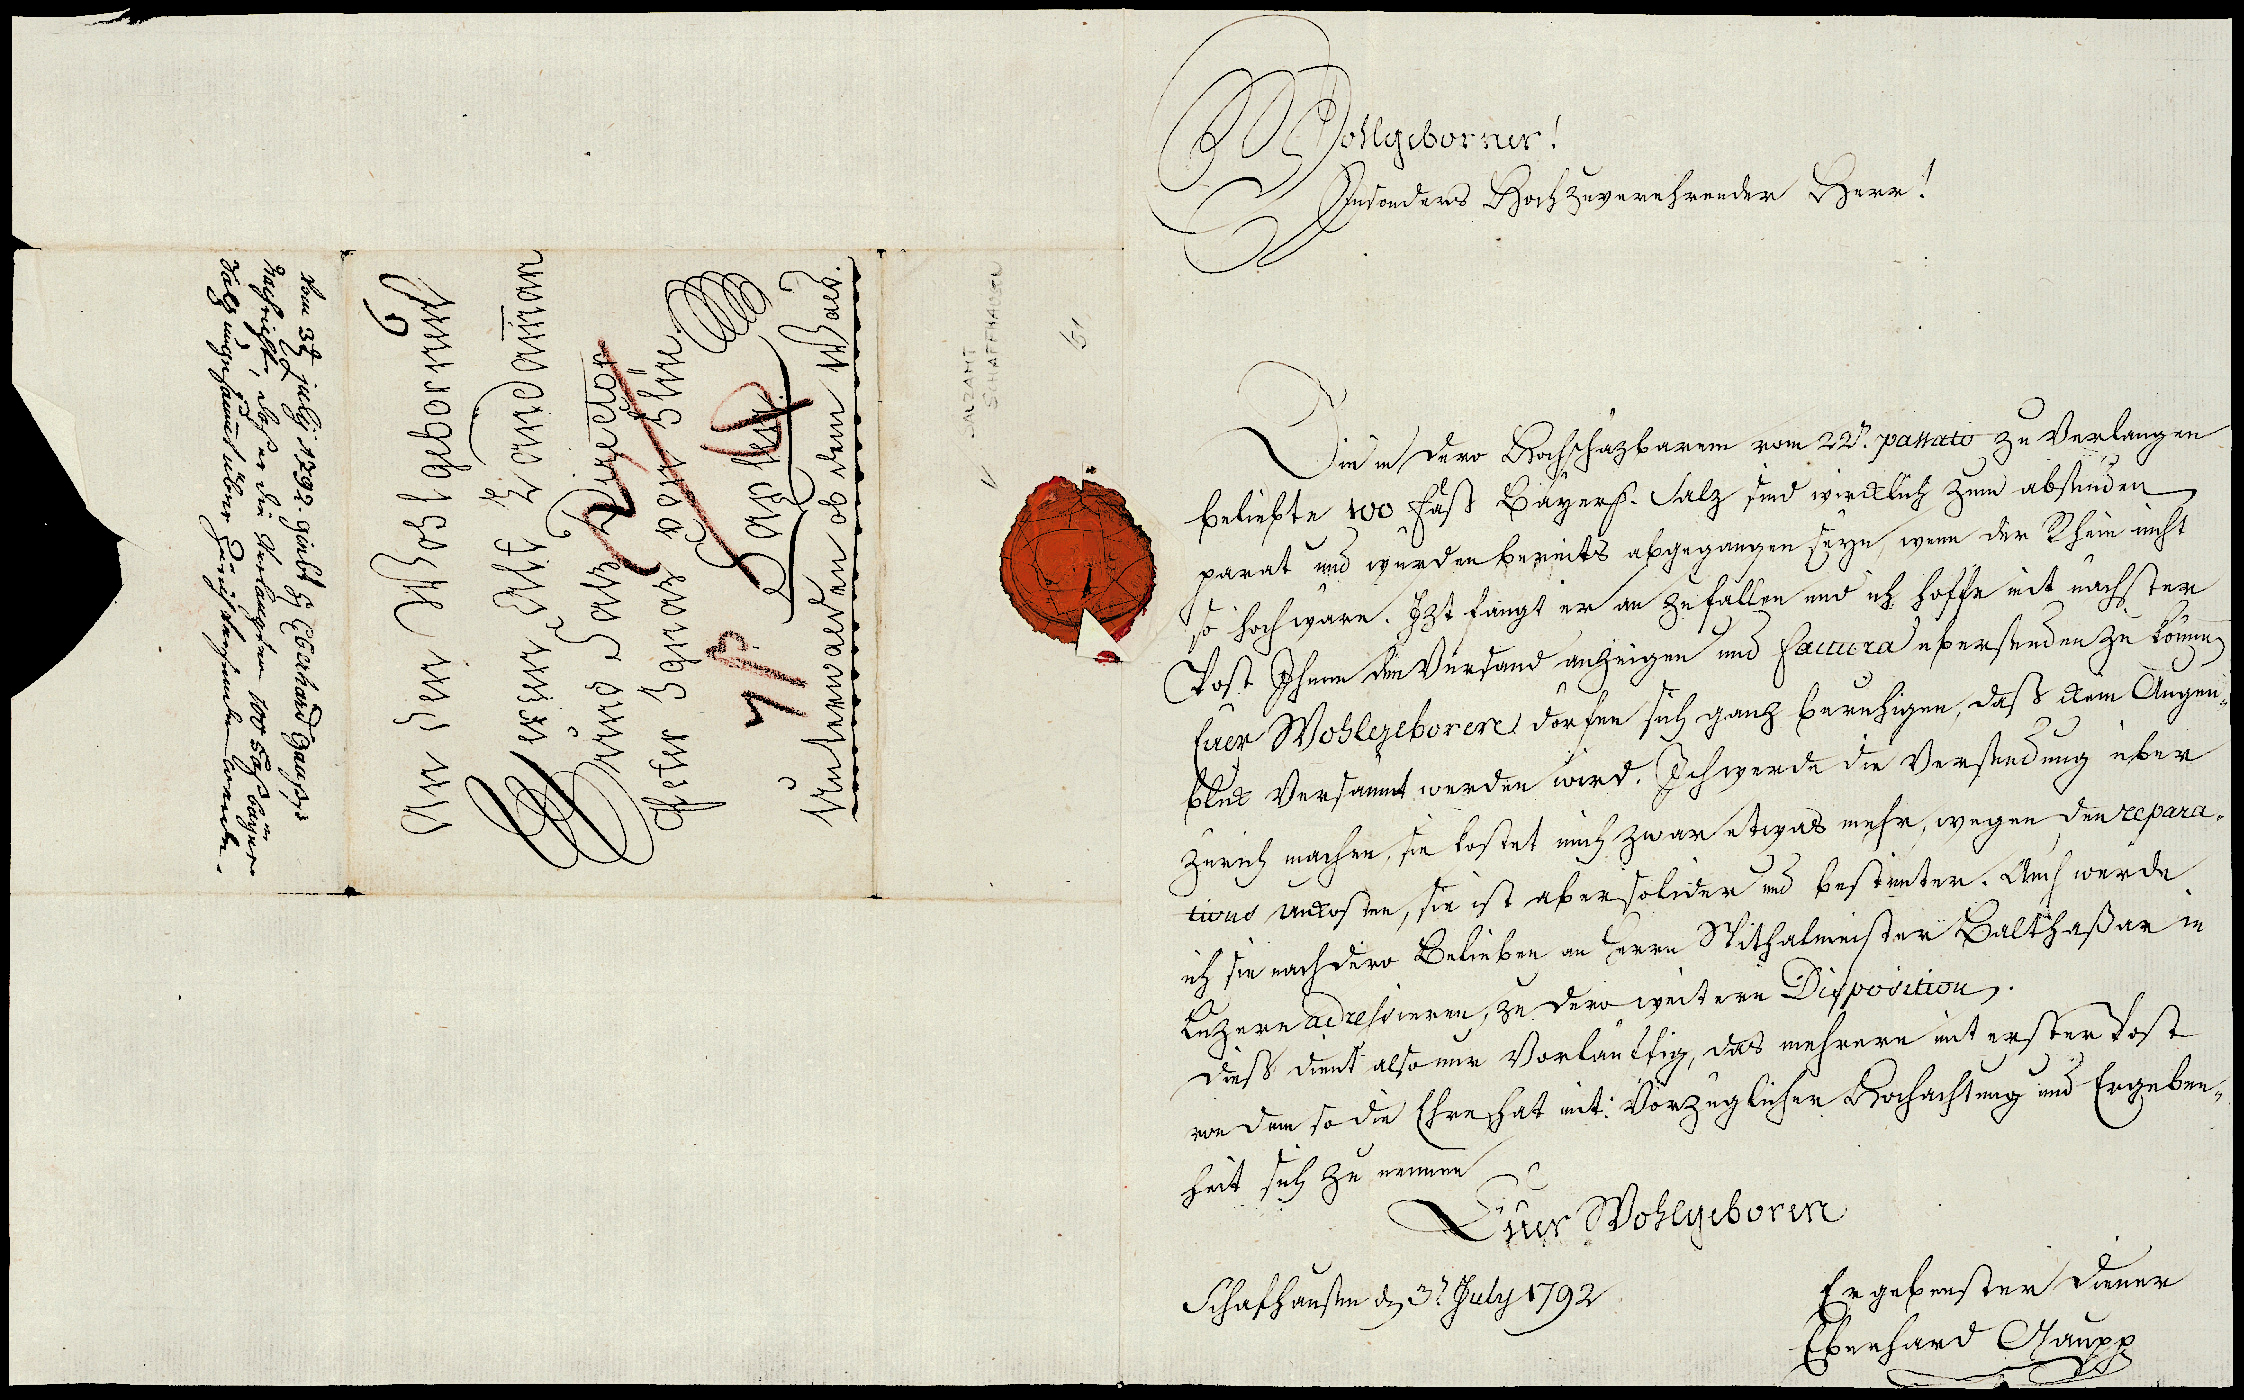 Wohlgeborner!
Insonders Hochzuverehrender Herr!
Die in Dero Hochschäzbarem vom 22ⁿ. passato zu Verlangen
beliebte 100 Faß Bayersch. Salz sind würcklich zum absenden
parat und wurden bereits abgegangen seyn, wenn der Rhein nicht
so hoch wäre. Jzt fangt er an zu fallen und ich hoffe mit nächster
Post Ihnen den Versand anzeigen und Factura übersenden zu können
Euer Wohlgeboren dörfen sich ganz beruhigen, daß kein Augen-
blick Versaumt werden wird. Ich werde die Versendung über
Zürich machen, sie kostet mich zwar etwas mehr, wegen den repara-
tions unkosten, sie ist aber solider und bestimter. Auch werde
ich sie nach dero Belieben an Herrn Spithalmeister Balthaßar in
Luzern adressieren, zu dero weitern Disposition.
Dieß dient also nur Vorläuffig, das mehrere mit erster Post
von dem so die Ehre hat mit Vorzüglicher Hochachtung und Ergeben-
heit sich zu nennen
Euer Wohlgeboren
Schafhausen d. 3ⁿ July 1792
Ergebenster Diener
Eberhard Gaupp
An Herr Wohlgebornen
Herrn Alt Landaman
und Salz Director
Peter Ignaz von Flüe
Saxlen
Unterwalden ob dem Wald.
SALZAMT
SCHAFFHAUSEN
61
vom 3ᵗ july 1792. giebt H Eberhard Gaupp
Nachricht, daß er die Verlangten 100 Faß bayer
Salz ungesaumt über Zürich versenden werde.